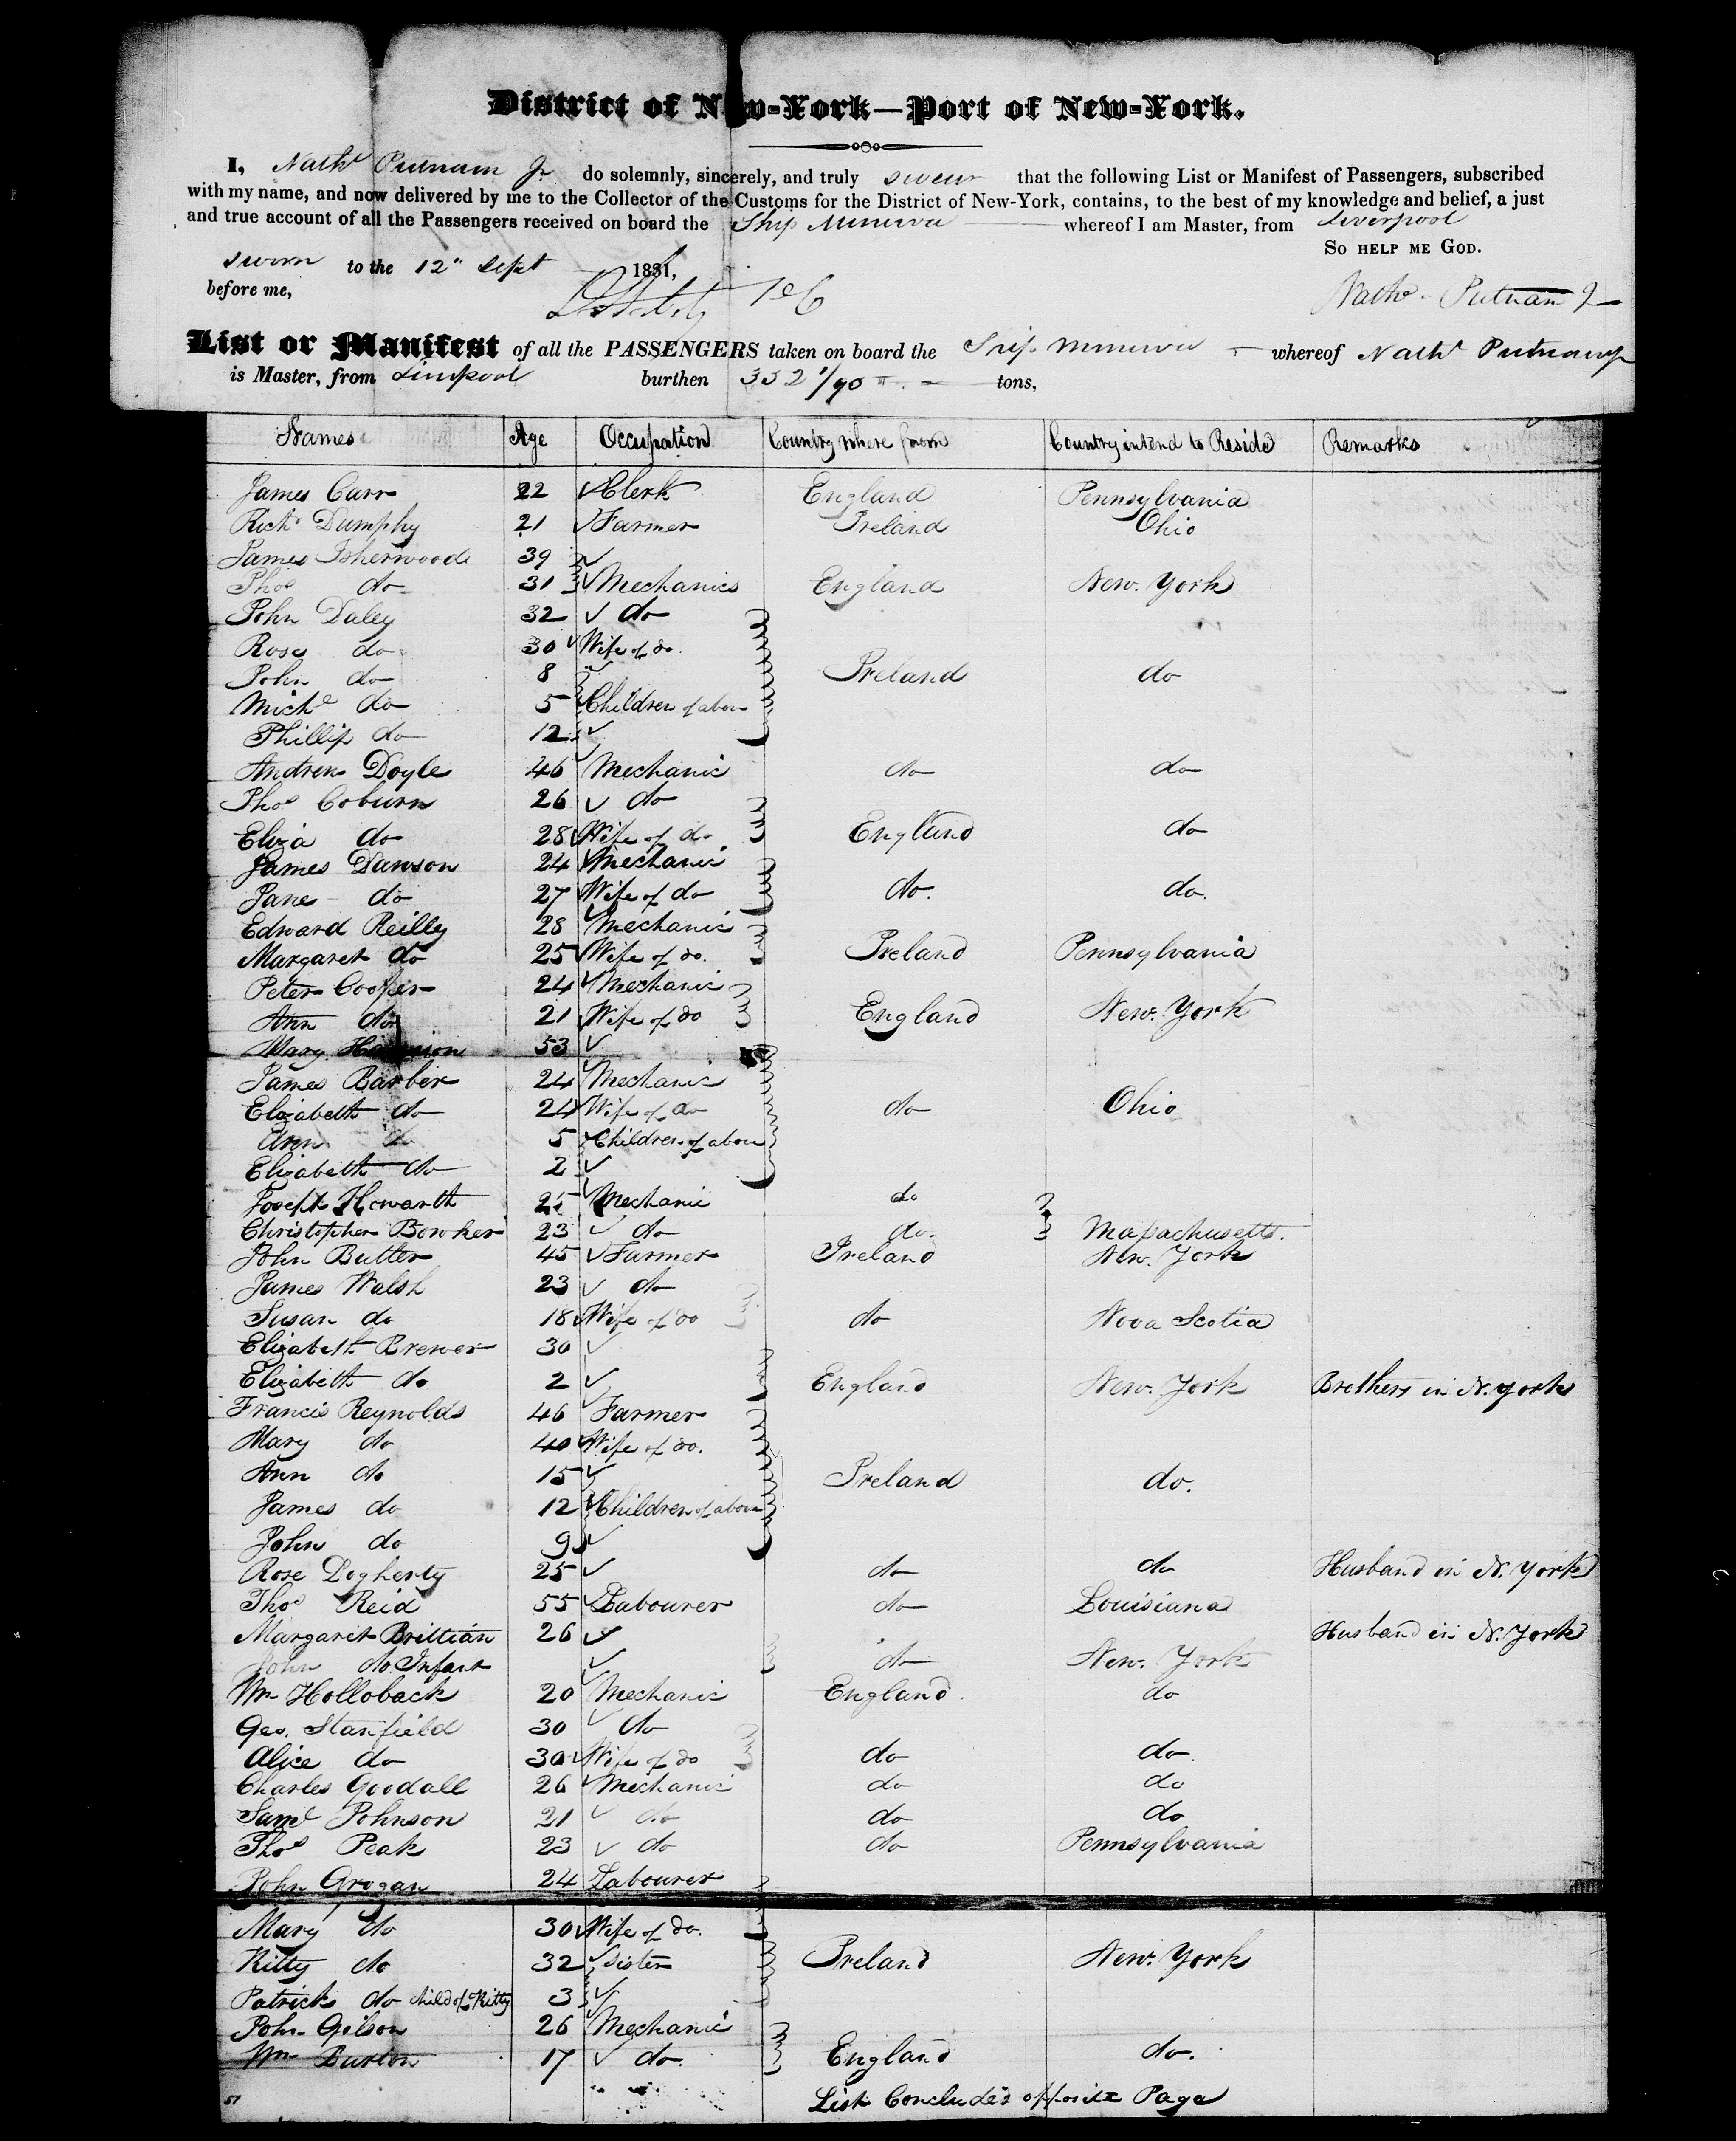 District of New-York—Port of New-York.
I, Nathl Putnam Jr do solemnly, sincerely, and truly swear that the following List or Manifest of Passengers, subscribed
with my name, and now delivered by me to the Collector of the Customs for the District of New-York, contains, to the best of my knowledge and belief, a just
and true account of all the Passengers received on board the Ship Minerva whereof I am Master, from Liverpool
So help me God.
sworn to the 12" Sept 1831,
before me,
Nathl. Putnam Jr
List or Manifest of all the PASSENGERS taken on board the Ship Minerva whereof Nathl Putnam Jr
is Master, from Liverpool burthen 332 1/90 tons,
Names Age Occupation Country where from Country intend to Reside Remarks
James Carr 22 Clerk England Pennsylvania
Richd Dumphy 21 Farmer Ireland Ohio
James Isherwood 39
Thos do 31 Mechanics England New. York
John Daley 32 do
Rose do 30 Wife of do.
John do 8 Ireland do
Michl do 5 Children of above
Phillip do 12
Andrew Doyle 46 Mechanic do do
Thos Coburn 26 do
Eliza do 28 Wife of do England do
James Dawson 24 Mechanic
Jane do 27 Wife of do do. do.
Edward Reilly 28 Mechanic
Margaret do 25 Wife of do. Ireland Pennsylvania
Peter Cooper 24 Mechanic
Ann do 21 Wife of do England New. York
Mary 53
James Barber 24 Mechanic
Elizabeth do 24 Wife of do do Ohio
Ann do 5 Children of above
Elizabeth do 2
Joseph Howarth 25 Mechanic do
Christopher Bowker 23 do do. Massachusetts.
John Butler 45 Farmer Ireland New. York
James Walsh 23 do
Susan do 18 Wife of do do Nova Scotia
Elizabeth Brewer 30
Elizabeth do 2 England New. York Brothers in N. York
Francis Reynolds 46 Farmer
Mary do 40 Wife of do.
Ann do 15 Ireland do.
James do 12 Children of above
John do 9
Rose Dogherty 25 do do Husband in N. York
Thos Reid 55 Labourer do Louisiana
Margaret Brittian 26 Husband in N. York
John do. Infant do New. York
Wm Holloback 20 Mechanic England do
Geo. Stanfield 30 do
Alice do 30 Wife of do do do.
Charles Goodall 26 Mechanic do do
Saml Johnson 21 do do do
Thos Peak 23 do do Pennsylvania
John Grogan 24 Labourer
Mary do 30 Wife of do.
Kitty do 32 Sister Ireland New. York
Patrick do child of Kitty 3
John Gilson 26 Mechanic
Wm Burton 17 do. England do.
List Concludes opposite Page
51